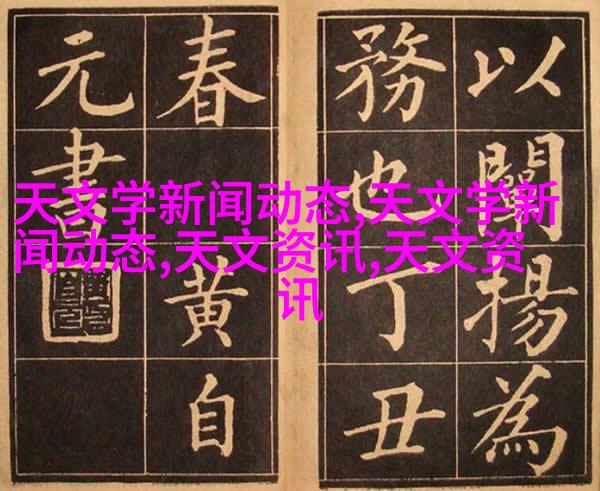 以闡揚為
務也丁丑
春黃自
元書
天文学新闻动态,天文学新
闻动态,天文资讯,天文资
讯